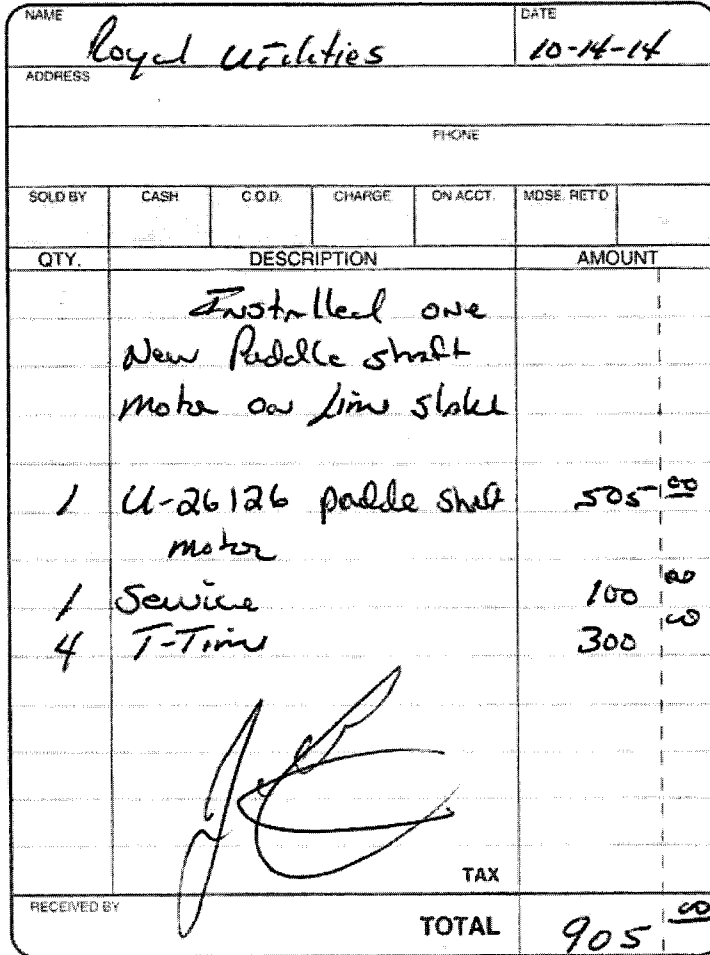 NAME DATE
Royal Utilities 10-14-14
ADDRESS
PHONE
SOLD BY CASH C.O.D. CHARGE ON ACCT. MDSE. RET'D
QTY. DESCRIPTION AMOUNT
Installed one
New Paddle shaft
motor on lime slake
1 U-26126 paddle shaft 505 00
motor
1 Service 100 00
4 T-Time 300 00
TAX
RECEIVED BY
TOTAL 905 00